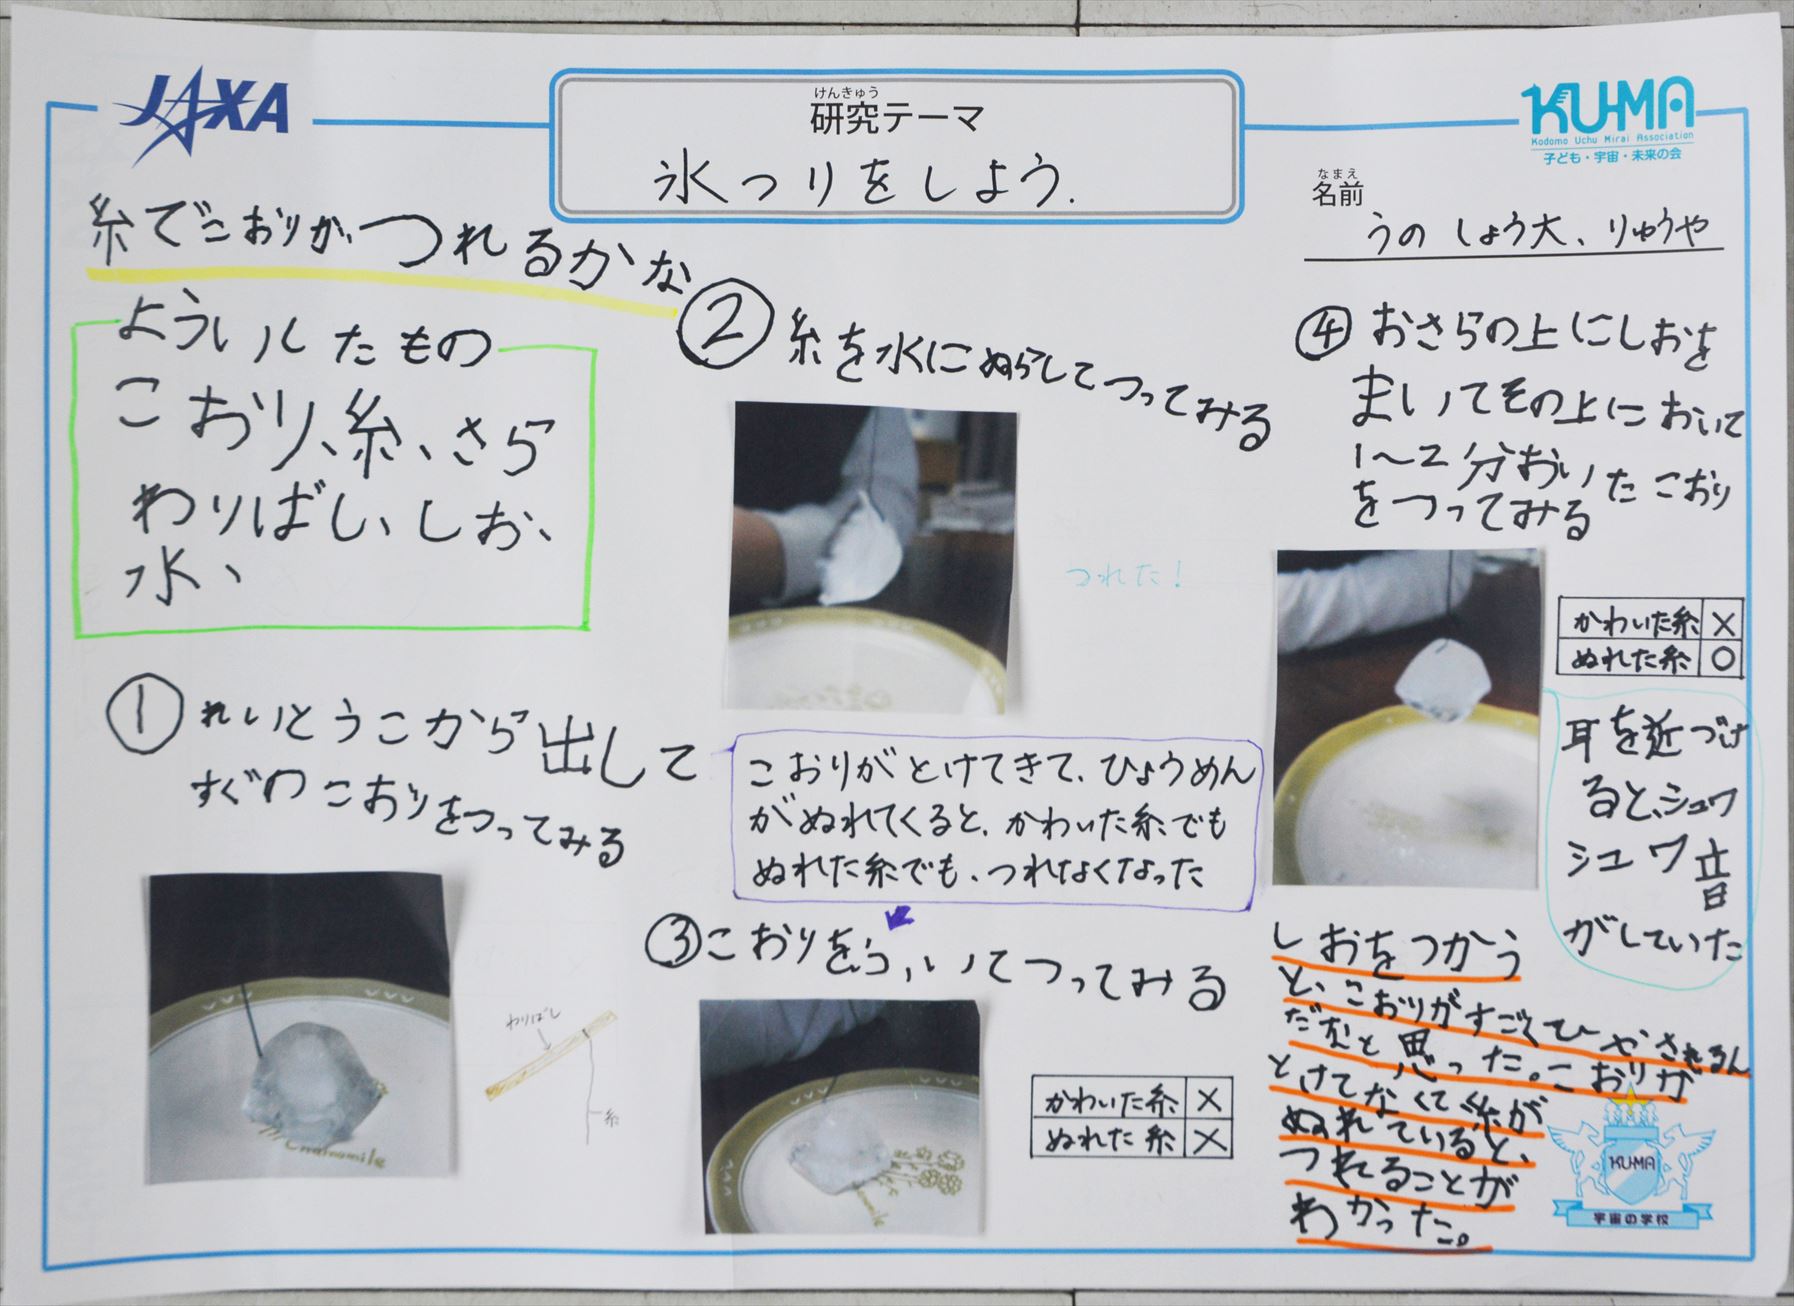 JAXA
けんきゅう
研究テーマ
氷つりをしよう.
KU-MA
Kodomo Uchu Mirai Association
子ども・宇宙・未来の会
なまえ
名前
うの しょう大、りゅうや
糸でこおりが、つれるかな
よういしたもの
こおり、糸、さら
わりばし、しお、
水、
① れいとうこから出して
すぐの こおりをつってみる
Chamomile
わりばし
糸
② 糸を水にぬらしてつってみる
つれた!
こおりがとけてきて、ひょうめん
がぬれてくると、かわいた糸でも
ぬれた糸でも、つれなくなった
③こおりをふいてつってみる
かわいた糸 ×
ぬれた糸 ×
④ おさらの上にしおを
まいてその上において
1〜2分おいたこおり
をつってみる
かわいた糸 ×
ぬれた糸 ○
耳を近づけ
ると、シュワ
シュワ音
がしていた
しおをつかう
と、こおりがすごくひやされるん
だなと思った。こおりが
とけてなくて糸が
ぬれていると、
つれることが
わかった。
KU-MA
宇宙の学校